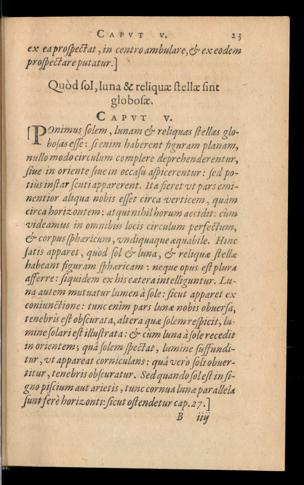 CAPVT V. 23
ex ea prospectat, in centro ambulare, & ex eodem
prospectare putatur.]
Quòd sol, luna & reliquæ stellæ sint
globosæ.
CAPVT V.
[Ponimus solem, lunam & reliquas stellas glo-
bosas esse: si enim haberent figuram planam,
nullo modo circulum complere deprehenderentur,
siue in oriente siue in occasu aspicerentur: sed po-
tiùs instar scuti apparerent. Ita fieret vt pars emi-
nentior aliqua nobis esset circa verticem, quàm
circa horizontem: at qui nihil horum accidit: cùm
videamus in omnibus locis circulum perfectum,
& corpus sphæricum, vndiquaque æquabile. Hinc
satis apparet, quòd sol & luna, & reliquæ stellæ
habeant figuram sphæricam: neque opus est plura
afferre: siquidem ex his cætera intelliguntur. Lu-
na autem mutuatur lumen à sole: sicut apparet ex
coniunctione: tunc enim pars lunæ nobis obuersa,
tenebris est obscurata, altera quæ solem respicit, lu-
mine solari est illustrata: & cùm luna à sole recedit
in orientem, quà solem spectat, lumine suffundi-
tur, vt appareat corniculans: quà verò soli obuer-
titur, tenebris obscuratur. Sed quando sol est in si-
gno piscium aut arietis, tunc cornua lunæ parallela
sunt ferè horizonti: sicut ostendetur cap. 27.]
B iiij